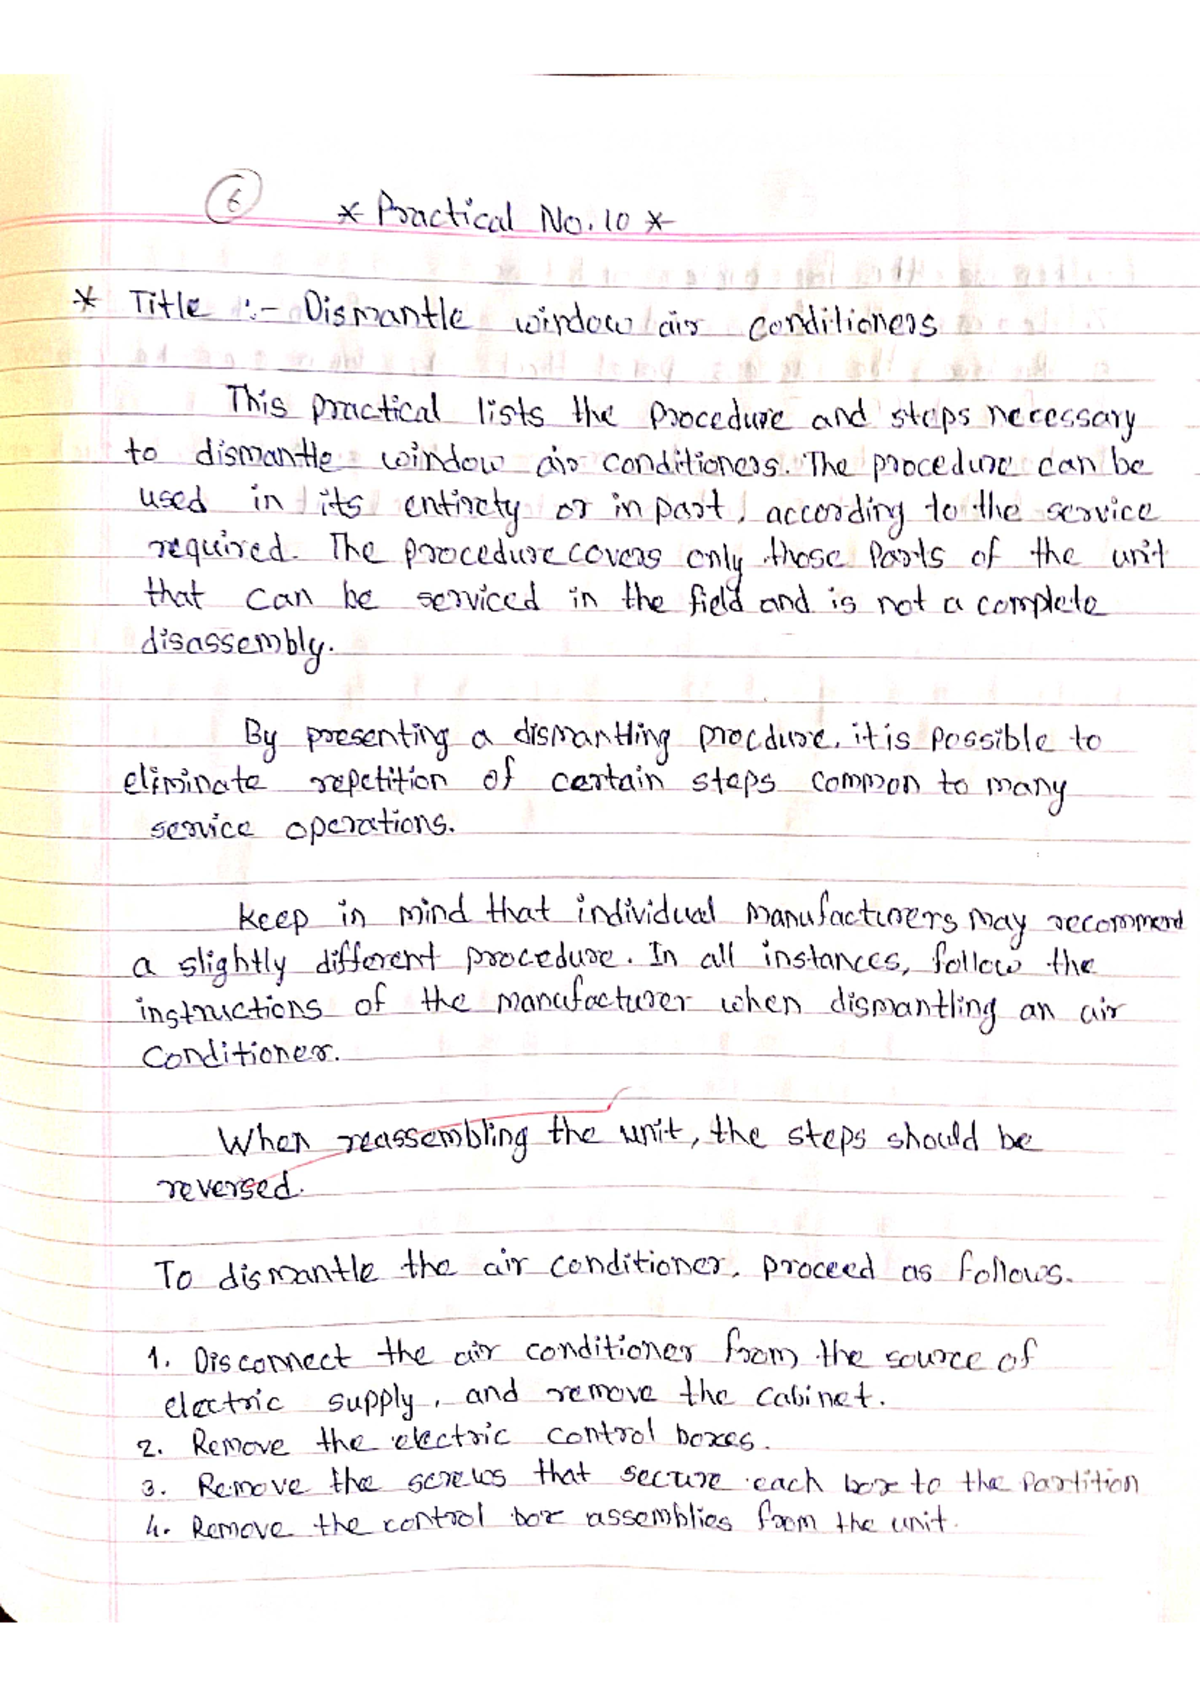 6
* Practical No. 10 *
* Title :- Dismantle window air conditioners
This practical lists the procedure and steps necessary
to dismantle window air conditioners. The procedure can be
used in its entirety or in part, according to the service
required. The procedure covers only those parts of the unit
that can be serviced in the field and is not a complete
disassembly.
By presenting a dismantling procdure, it is possible to
eliminate repetition of certain steps common to many
service operations.
keep in mind that individual manufacturers may recommend
a slightly different procedure. In all instances, follow the
instructions of the manufacturer when dismantling an air
conditioner.
When reassembling the unit, the steps should be
reversed.
To dismantle the air conditioner, proceed as follows.
1. Disconnect the air conditioner from the source of
electric supply, and remove the cabinet.
2. Remove the electric control boxes.
3. Remove the screws that secure each box to the partition
4. Remove the control box assemblies from the unit.